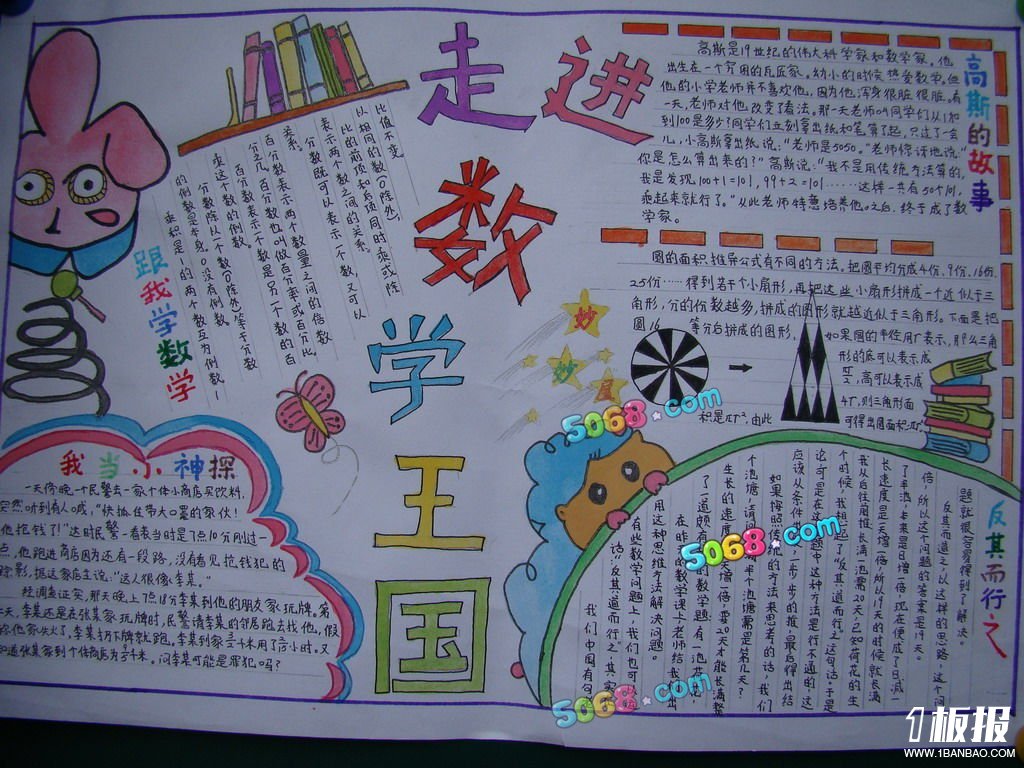 走进
数
学
王
国
高斯的故事
高斯是19世纪的伟大科学家和数学家。他
出生在一个穷困的瓦匠家。幼小的时候热爱数学。但
他的小学老师并不喜欢他,因为他浑身很脏很脏。有
一天,老师对他改变了看法。那一天老师叫同学们从1加
到100是多少?同学们立刻拿出纸和笔算了起,只过了一会
儿,小高斯拿出纸说:“老师是5050。”老师惊讶地说:“
你是怎么算出来的?”高斯说:“我不是用传统方法算的,
我是发现100+1=101,99+2=101……这样一共有50个101,
乘起来就行了。”从此老师特意培养他。之后,终于成了数
学家。
妙
妙
屋
圆的面积推导公式有不同的方法。把圆平均分成4份、9份、16份、
25份……得到若干个小扇形,再把这些小扇形拼成一个近似于三
角形,分的份数越多,拼成的图形就越近似于三角形。下面是把
圆16等分后拼成的图形,
如果圆的半径用r表示,那么三角
形的底可以表示成
高可以表示成
4r,则三角形面
积是πr²,由此可得出圆面积πr²
跟我学数学
乘积是1的两个数互为倒数,1
的倒数是本身,0没有倒数。
分数除以一个数(0除外)等于分数
乘这个数的倒数。
百分数表示一个数是另一个数的百
分之几,百分数也叫做百分率或百分比。
百分数表示两个数量之间的倍数
关系。
分数既可以表示一个数,又可以
表示两个数之间的关系。
比的前项和后项同时乘或除
以相同的数(0除外),
比值不变。
我当小神探
一天傍晚,一个民警去一家个体小商店买饮料,
突然听到有人喊:“快抓住带大口罩的家伙!
他抢钱了!”这时民警一看表当时是7点10分刚过一
点,他跑进商店因为还有一段路,没有看见抢钱犯的
踪影,据这家店主说:“这人很像李某。”
经调查证实,那天晚上7点18分李某到他的朋友家玩牌。第
天,李某还是在张某家玩牌时,民警请李某的邻居跑去找他,假
称他家失火了,李某扔下牌就跑。李某到家
千米用了
小时。又
知道张某家到个体商店为
千米。问李某可能是罪犯吗?
反其而行之
我们中国有句
话:“反其道而行之”。其实
有些数学问题上,我们也可以
用这种思维方法解决问题。
在昨天的数学课上老师给我们出
了一道颇有
的数学题:有一池荷花
生长的速度
天增一倍,要20天才能长满整
个池塘,请问
半个池塘需是第几天?
如果按照传统的方法来思考的话,我们
应该从条件
一步一步的推,最后得出结
论,可是在这
题中这种方法是行不通的,这
个时候,我想起了“反其道而行之”这句话。于是
我从后往前推,长满池需20天,已知荷花的生
长速度是一天增一倍,所以19天的时候就长满
了半池。本来是日增一倍,现在便成了日减一
倍,所以这个问题的答案是19天。
反其而道之,以这样的思路,这个问
题就很容易得到了解决。
5068.com
5068.com
5068.com
1板报
WWW.1BANBAO.COM